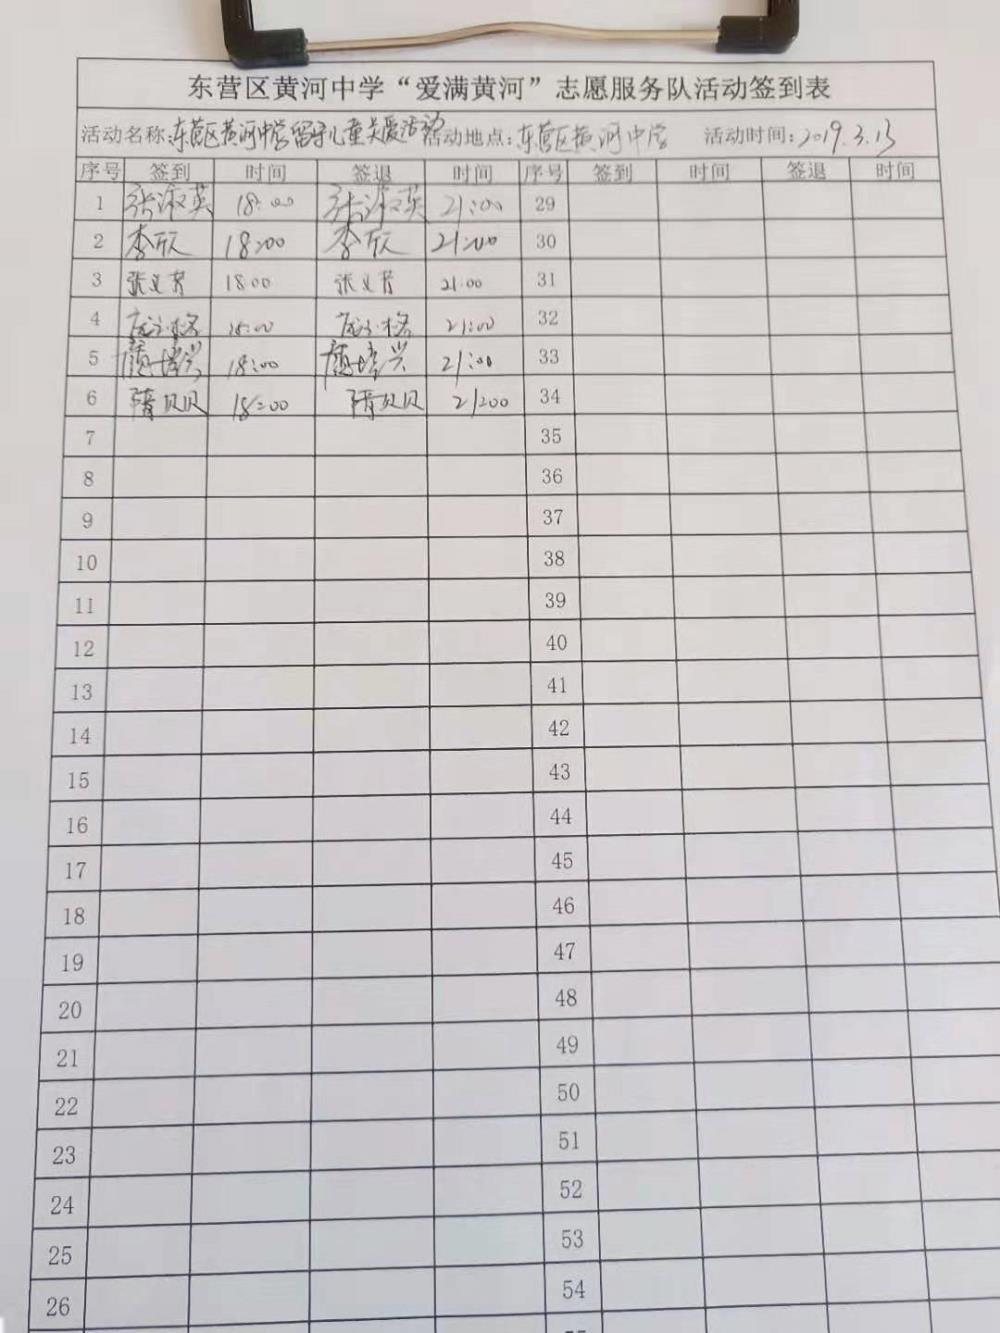 东营区黄河中学“爱满黄河”志愿服务队活动签到表
活动名称:东营区黄河中学留守儿童关爱活动 活动地点:东营区黄河中学 活动时间:2019.3.13
序号 签到 时间 签退 时间 序号 签到 时间 签退 时间
1 张淑英 18:00 张淑英 21:00 29
2 李欣 18:00 李欣 21:00 30
3 张义芳 18:00 张义芳 21:00 31
4 18:00 21:00 32
5 颜培兴 18:00 颜培兴 21:00 33
6 隋贝贝 18:00 隋贝贝 21:00 34
7 35
8 36
9 37
10 38
11 39
12 40
13 41
14 42
15 43
16 44
17 45
18 46
19 47
20 48
21 49
22 50
23 51
24 52
25 53
26 54